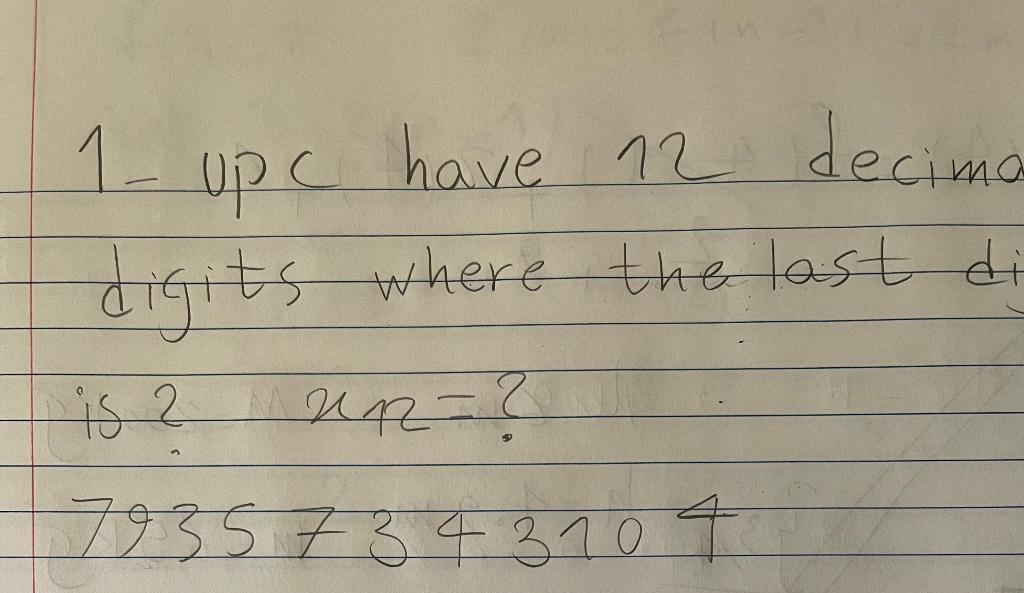 1- upc have 12 decima
digits where the last di
is ? x12 = ?
7 9 3 5 7 3 4 3 1 0 4